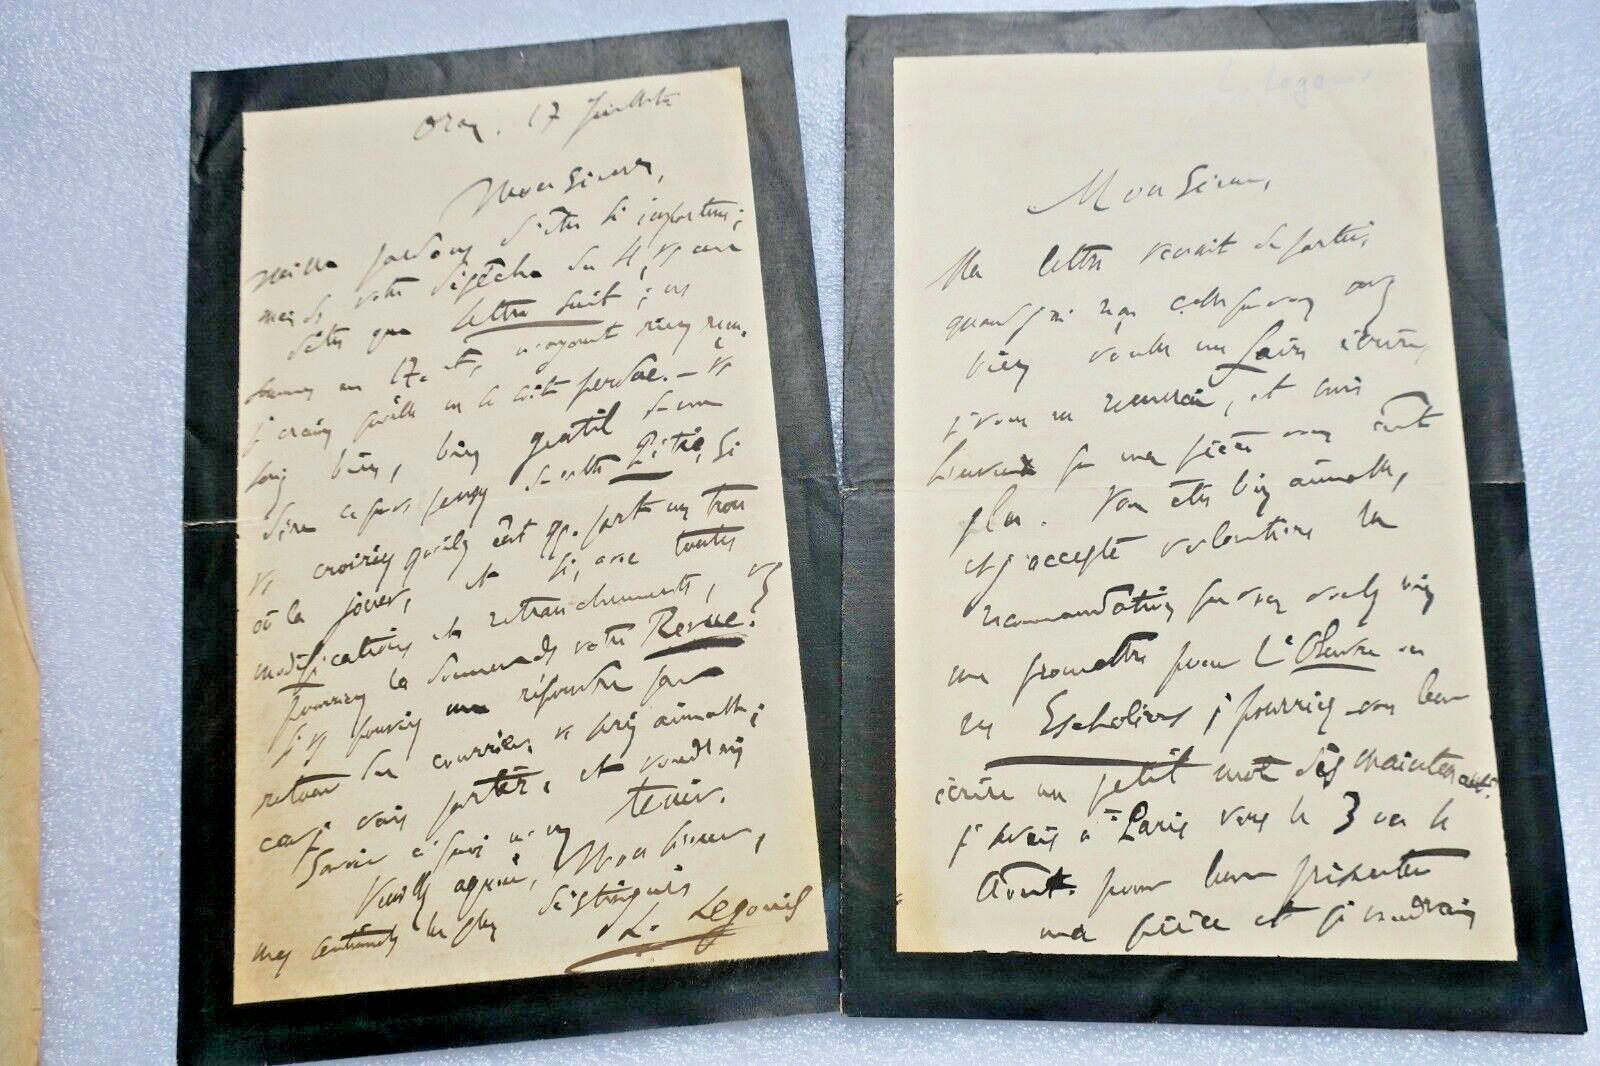 Oran, 17 Juillet
Monsieur,
Mille pardons d'être si importun;
mais votre dépêche du 4, vs me
dites que lettre suit; ns
sommes au 17. et, n'ayant rien reçu,
je crains qu'elle ne se soit perdue. — Vs
bien, bien gentil de me
dire ce que vs pensez de cette Pitié, si
vs croiriez qu'il y eût qq. part un trou
où la jouer, et si, avec toutes
modifications et retranchements, vs
pourriez la donner ds votre Revue.
Si vs pouviez me répondre par
retour du courrier, vs seriez aimable;
car je vais partir, et voudrais
savoir à quoi m'en tenir.
Veuillez agréer, Monsieur,
mes sentiments les plus distingués
L. Legouis
L. Legouis
Monsieur,
Ma lettre venait de partir,
quand j'ai reçu celle que vous avez
bien voulu me faire écrire,
je vous en remercie, et suis
heureux que ma pièce vous eût
plu. Vous êtes bien aimable,
et j'accepte volontiers la
recommandation que vous voulez bien
me promettre pour L'Oeuvre ou
les Escholiers; pourriez-vous leur
écrire un petit mot dès maintenant.
Je serais à Paris vers le 3 ou le
Août pour leur présenter
ma pièce et je voudrais